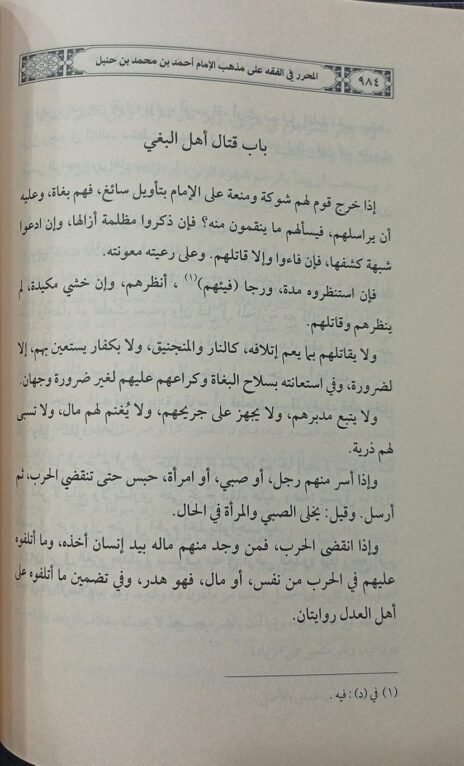 المحرر في الفقه على مذهب الإمام أحمد بن محمد بن حنبل
٩٨٤
باب قتال أهل البغي
إذا خرج قوم لهم شوكة ومنعة على الإمام بتأويل سائغ، فهم بغاة، وعليه
أن يراسلهم، فيسألهم ما ينقمون منه؟ فإن ذكروا مظلمة أزالها، وإن ادعوا
شبهة كشفها، فإن فاءوا وإلا قاتلهم. وعلى رعيته معونته.
فإن استنظروه مدة، ورجا (فيئهم)(١) ، أنظرهم، وإن خشي مكيدة، لم
ينظرهم وقاتلهم.
ولا يقاتلهم بما يعم إتلافه، كالنار والمنجنيق، ولا بكفار يستعين بهم، إلا
لضرورة، وفي استعانته بسلاح البغاة وكراعهم عليهم لغير ضرورة وجهان.
ولا يتبع مدبرهم، ولا يجهز على جريحهم، ولا يُغنم لهم مال، ولا تسبى
لهم ذرية.
وإذا أسر منهم رجل، أو صبي، أو امرأة، حبس حتى تنقضي الحرب، ثم
أرسل. وقيل: يخلى الصبي والمرأة في الحال.
وإذا انقضى الحرب، فمن وجد منهم ماله بيد إنسان أخذه، وما أتلفوه
عليهم في الحرب من نفس، أو مال، فهو هدر، وفي تضمين ما أتلفوه على
أهل العدل روايتان.
(١) في (د): فيه .